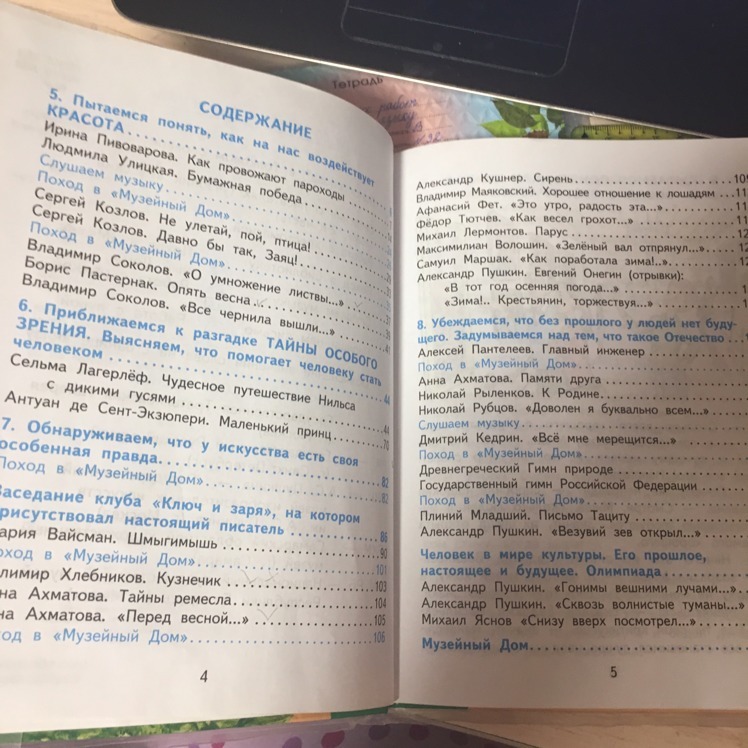 Тетрадь
СОДЕРЖАНИЕ
5. Пытаемся понять, как на нас воздействует
КРАСОТА
Ирина Пивоварова. Как провожают пароходы
Людмила Улицкая. Бумажная победа
Слушаем музыку
Поход в «Музейный Дом»
Сергей Козлов. Не улетай, пой, птица!
Сергей Козлов. Давно бы так, Заяц!
Поход в «Музейный Дом»
Владимир Соколов. «О умножение листвы...»
Борис Пастернак. Опять весна
Владимир Соколов. «Все чернила вышли...»
6. Приближаемся к разгадке ТАЙНЫ ОСОБОГО
ЗРЕНИЯ. Выясняем, что помогает человеку стать
человеком 44
Сельма Лагерлёф. Чудесное путешествие Нильса
с дикими гусями 44
Антуан де Сент-Экзюпери. Маленький принц 70
7. Обнаруживаем, что у искусства есть своя
особенная правда 82
Поход в «Музейный Дом» 82
Заседание клуба «Ключ и заря», на котором
присутствовал настоящий писатель 86
ария Вайсман. Шмыгимышь 90
оход в «Музейный Дом» 101
лимир Хлебников. Кузнечик 103
на Ахматова. Тайны ремесла 104
на Ахматова. «Перед весной...» 105
ход в «Музейный Дом» 106
4
Александр Кушнер. Сирень 109
Владимир Маяковский. Хорошее отношение к лошадям
Афанасий Фет. «Это утро, радость эта...»
Фёдор Тютчев. «Как весел грохот...»
Михаил Лермонтов. Парус
Максимилиан Волошин. «Зелёный вал отпрянул...»
Самуил Маршак. «Как поработала зима!..»
Александр Пушкин. Евгений Онегин (отрывки):
«В тот год осенняя погода...»
«Зима!.. Крестьянин, торжествуя...»
8. Убеждаемся, что без прошлого у людей нет буду-
щего. Задумываемся над тем, что такое Отечество
Алексей Пантелеев. Главный инженер
Поход в «Музейный Дом»
Анна Ахматова. Памяти друга
Николай Рыленков. К Родине
Николай Рубцов. «Доволен я буквально всем...»
Слушаем музыку
Дмитрий Кедрин. «Всё мне мерещится...»
Поход в «Музейный Дом»
Древнегреческий Гимн природе
Государственный гимн Российской Федерации
Поход в «Музейный Дом»
Плиний Младший. Письмо Тациту
Александр Пушкин. «Везувий зев открыл...»
Человек в мире культуры. Его прошлое,
настоящее и будущее. Олимпиада
Александр Пушкин. «Гонимы вешними лучами...»
Александр Пушкин. «Сквозь волнистые туманы...»
Михаил Яснов «Снизу вверх посмотрел...»
Музейный Дом
5